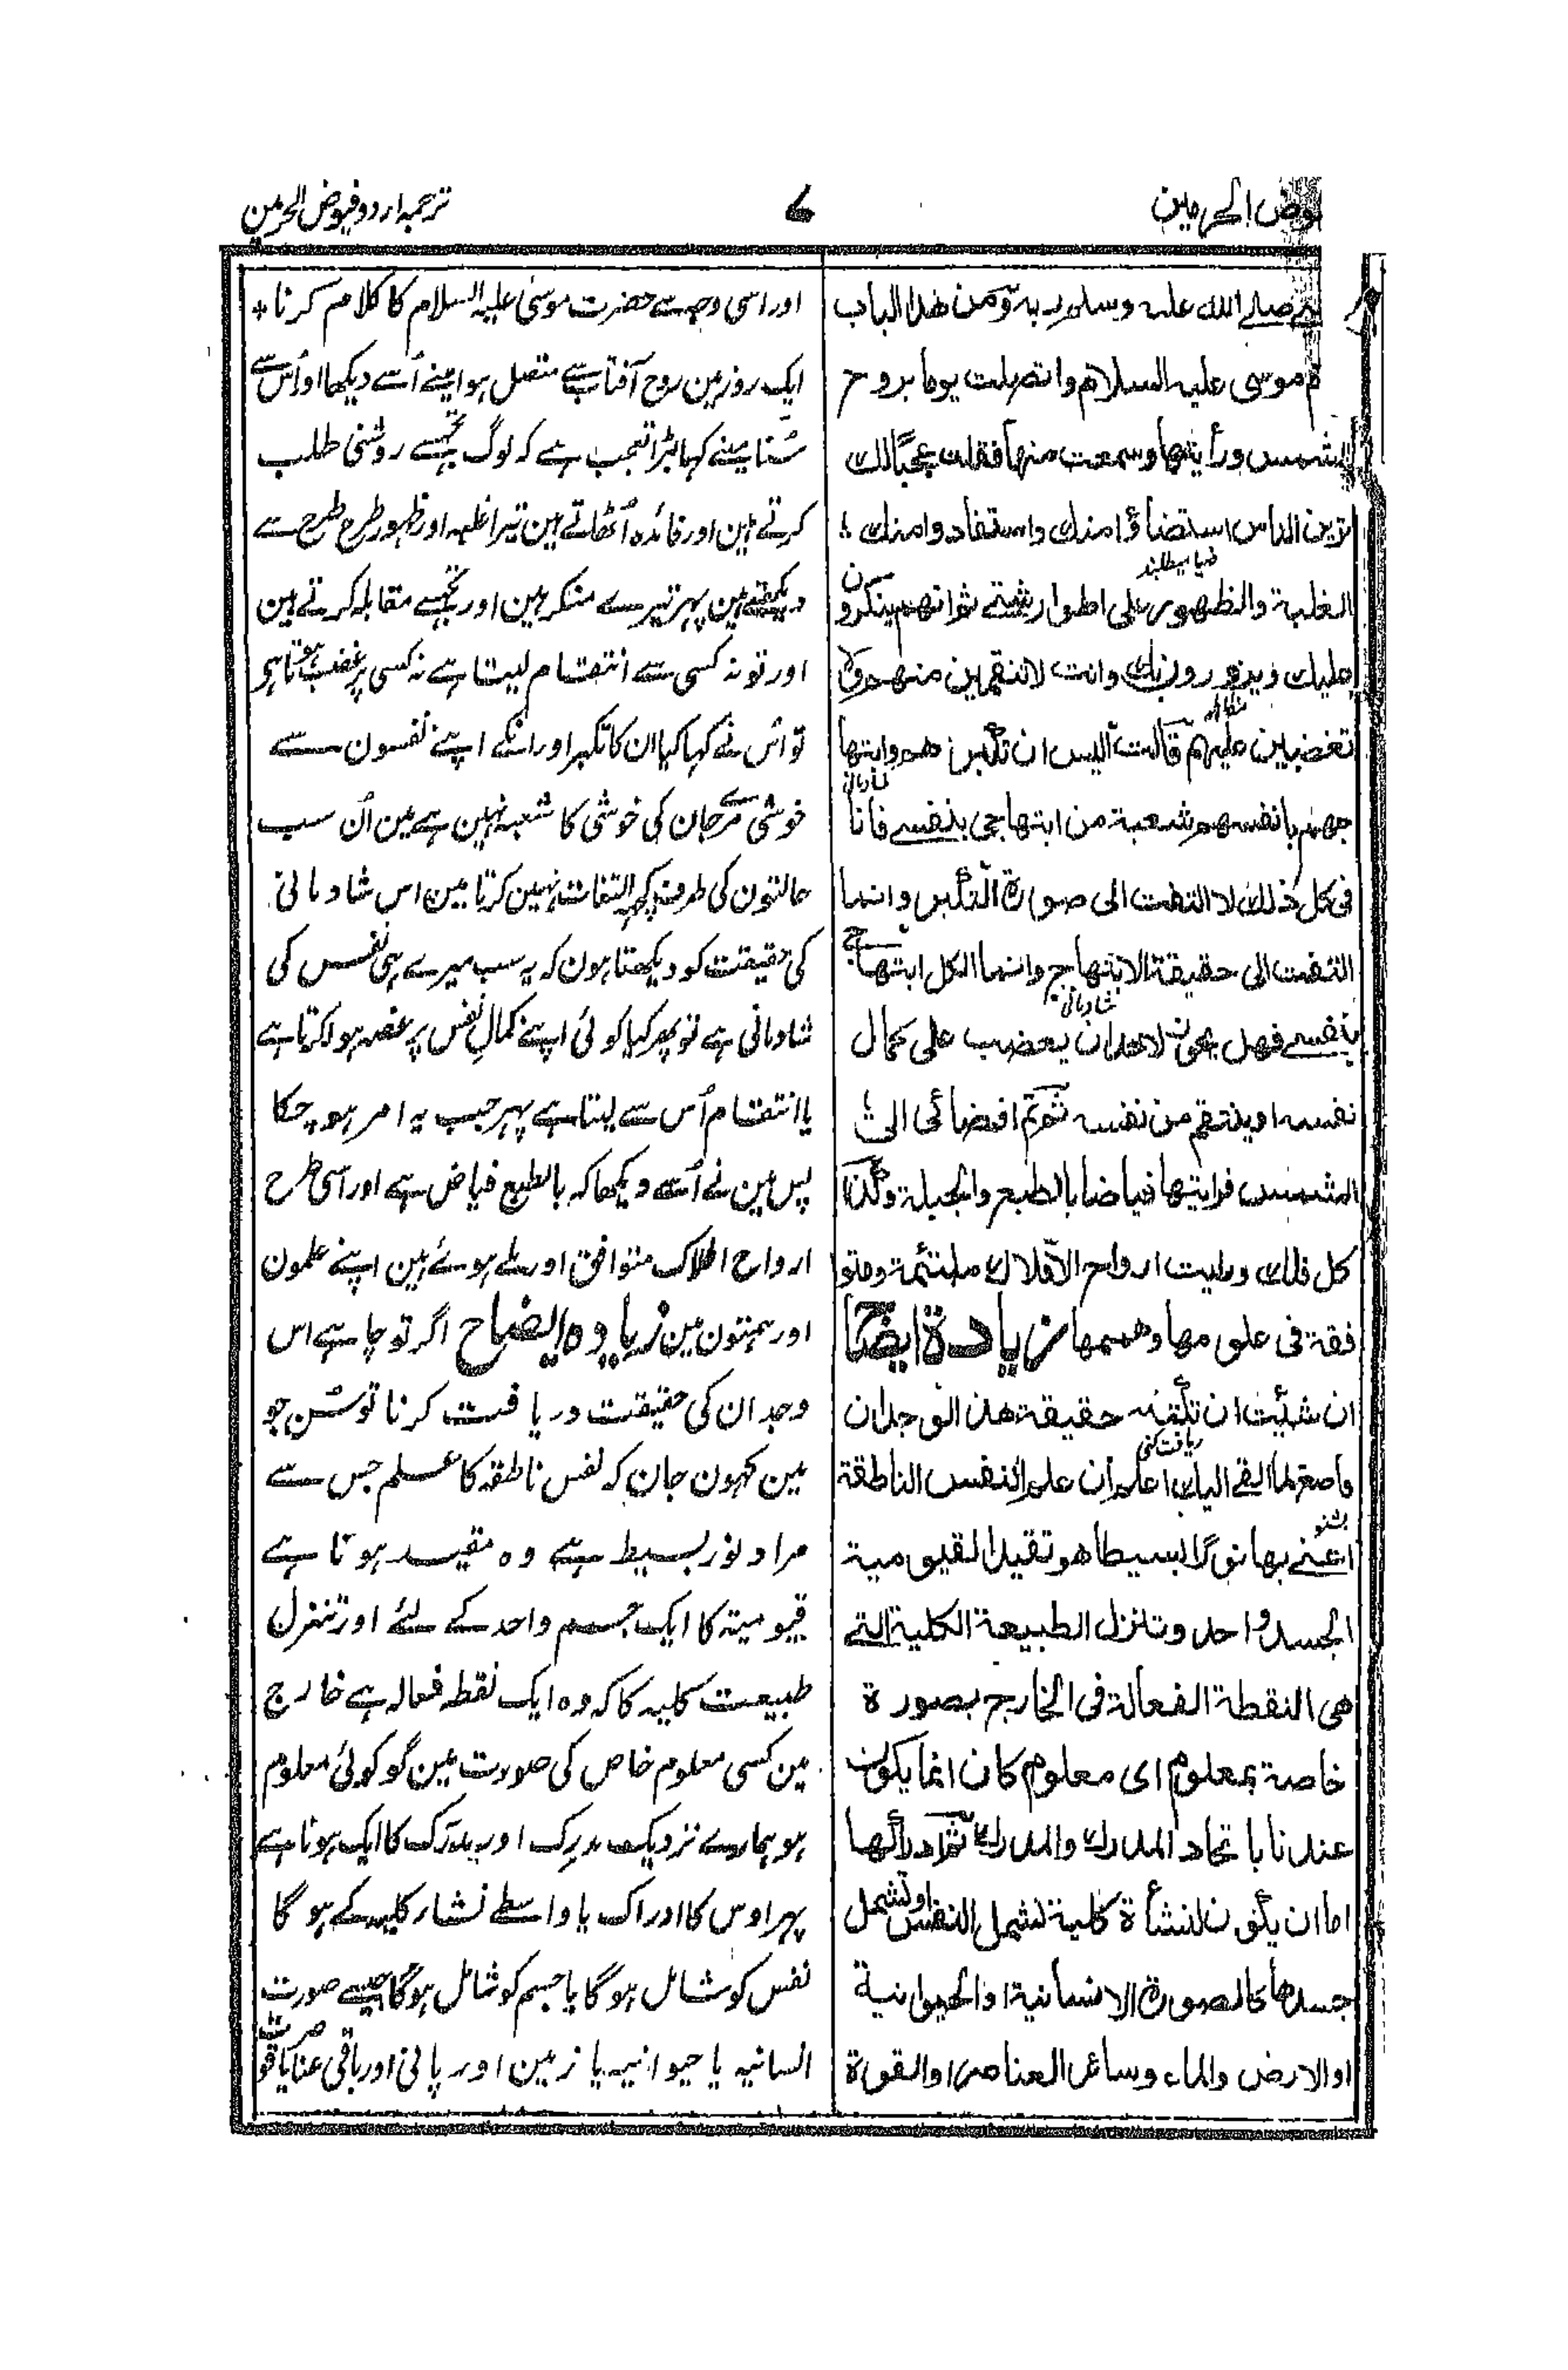 الحرمين
۷
ترجمہ اردو فیوض الحرمین
صلے اللہ علیہ وسلم ربہ ومن ھذا الباب
م موسی علیہ السلام واتصلت یوما بروح
الشمس ورأیتھا وسمعت منھا فقلت عجبًا لك
ترین الناس استضاؤا منك واستفادوا منك
ضیا میطلبند
الغلبة والظھور علی اطوار شتے ثم انھم ینکرون
علیك ویزورونك وانت لا تنقمین منھم ولا
تغضبین علیھم قالت الیس ان تکبرھم وابتھا
جھم بانفسھم شعبة من ابتھاجی بنفسے فانا
فی کل ذلك لا التفت الی صورة التکبر وانما
التفت الی حقیقة الابتھاج وانما الکل ابتھاج
شادمانی
بنفسے فھل یجوز لاحد ان یغضب علی کمال
نفسہ او ینتقم من نفسہ ثم تم افضائی الی
الشمس فرایتھا فیاضا بالطبع والجبلة وکذا
کل فلك ورایت ارواح الافلاك ملتئمة ومتوا
فقة فی علومھا وھممھا زیادة ایضاح
ان شئیت ان تکتنہ حقیقة ھذا الوجدان
دریافت کنی
فاصغ لما القے الیك اعلم ان علم النفس الناطقة
بشنو
اعنے بھا نورًا بسیطا ھو تقید القیومیة
الجسد واحد وتنزل الطبیعة الکلیة التے
ھی النقطة الفعالة فی الخارج بصورة
خاصة بمعلوم ای معلوم کان انما یکون
عندنا باتحاد المدرك والمدرك ثم ادراکھا
اما ان یکون لنشأة کلیة تشمل النفس او تشمل
جسدھا کالصورة الانسانیة او الحیوانیة
او الارض والماء وسائر العناصر او القوة
اور اسی وجہ سے حضرت موسیٰ علیہ السلام کا کلام کرنا٭
ایک روز مین روح آفتاب سے متصل ہوا مینے اُسے دیکھا اور اُس سے
سُنا مینے کہا بڑا تعجب ہے کہ لوگ تجھسے روشنی طلب
کرتے ہین اور فائدہ اُٹھاتے ہین تیرا غلبہ اور ظہور طرح طرح سے
دیکھتے ہین پہر تیرے منکر ہین اور تجھسے مقابلہ کرتے ہین
اور تو نہ کسی سے انتقام لیتا ہے نہ کسی پر غضب ہوتا ہی
تو اُس نے کہا کیا ان کا تکبر اور انکے اپنے نفسون سے
خوشی میرے جان کی خوشی کا شعبہ نہین ہے مین اُن سب
حالتون کی طرف کچھ التفات نہین کرتا مین اس شادمانی
کی حقیقت کو دیکھتا ہون کہ یہ سب میرے ہی نفس کی
شادمانی ہے تو پھر کیا کوئی اپنے کمالِ نفس پر غصہ ہوا کرتا ہے
یا انتقام اُس سے لیتا ہے پہر جب یہ امر ہو چکا
پس مین نے اُسے دیکھا کہ بالطبع فیاض ہے اور اسی طرح
ارواح افلاک متوافق اور ملے ہوئے ہین اپنے علمون
اور ہمتون مین زیادہ ایضاح اگر تو چاہے اس
وجدان کی حقیقت دریافت کرنا تو سُن جو
مین کہون جان کہ نفس ناطقہ کا علم جس سے
مراد نور بسیط ہے وہ مقید ہوتا ہے
قیومیتہ کا ایک جسم واحد کے لئے اور تنزل
طبیعت کلیہ کا کہ وہ ایک نقطہ فعالہ ہے خارج
مین کسی معلوم خاص کی صورت مین گو کوئی معلوم
ہو ہمارے نزدیک مدرِک اور مدرَک کا ایک ہونا ہے
پہر اوس کا ادراک یا واسطے نشار کلیہ کے ہو گا
نفس کو شامل ہو گا یا جسم کو شامل ہو گا جیسے صورت
انسانیہ یا حیوانیہ یا زمین اور پانی اور باقی عناصر یا قوت